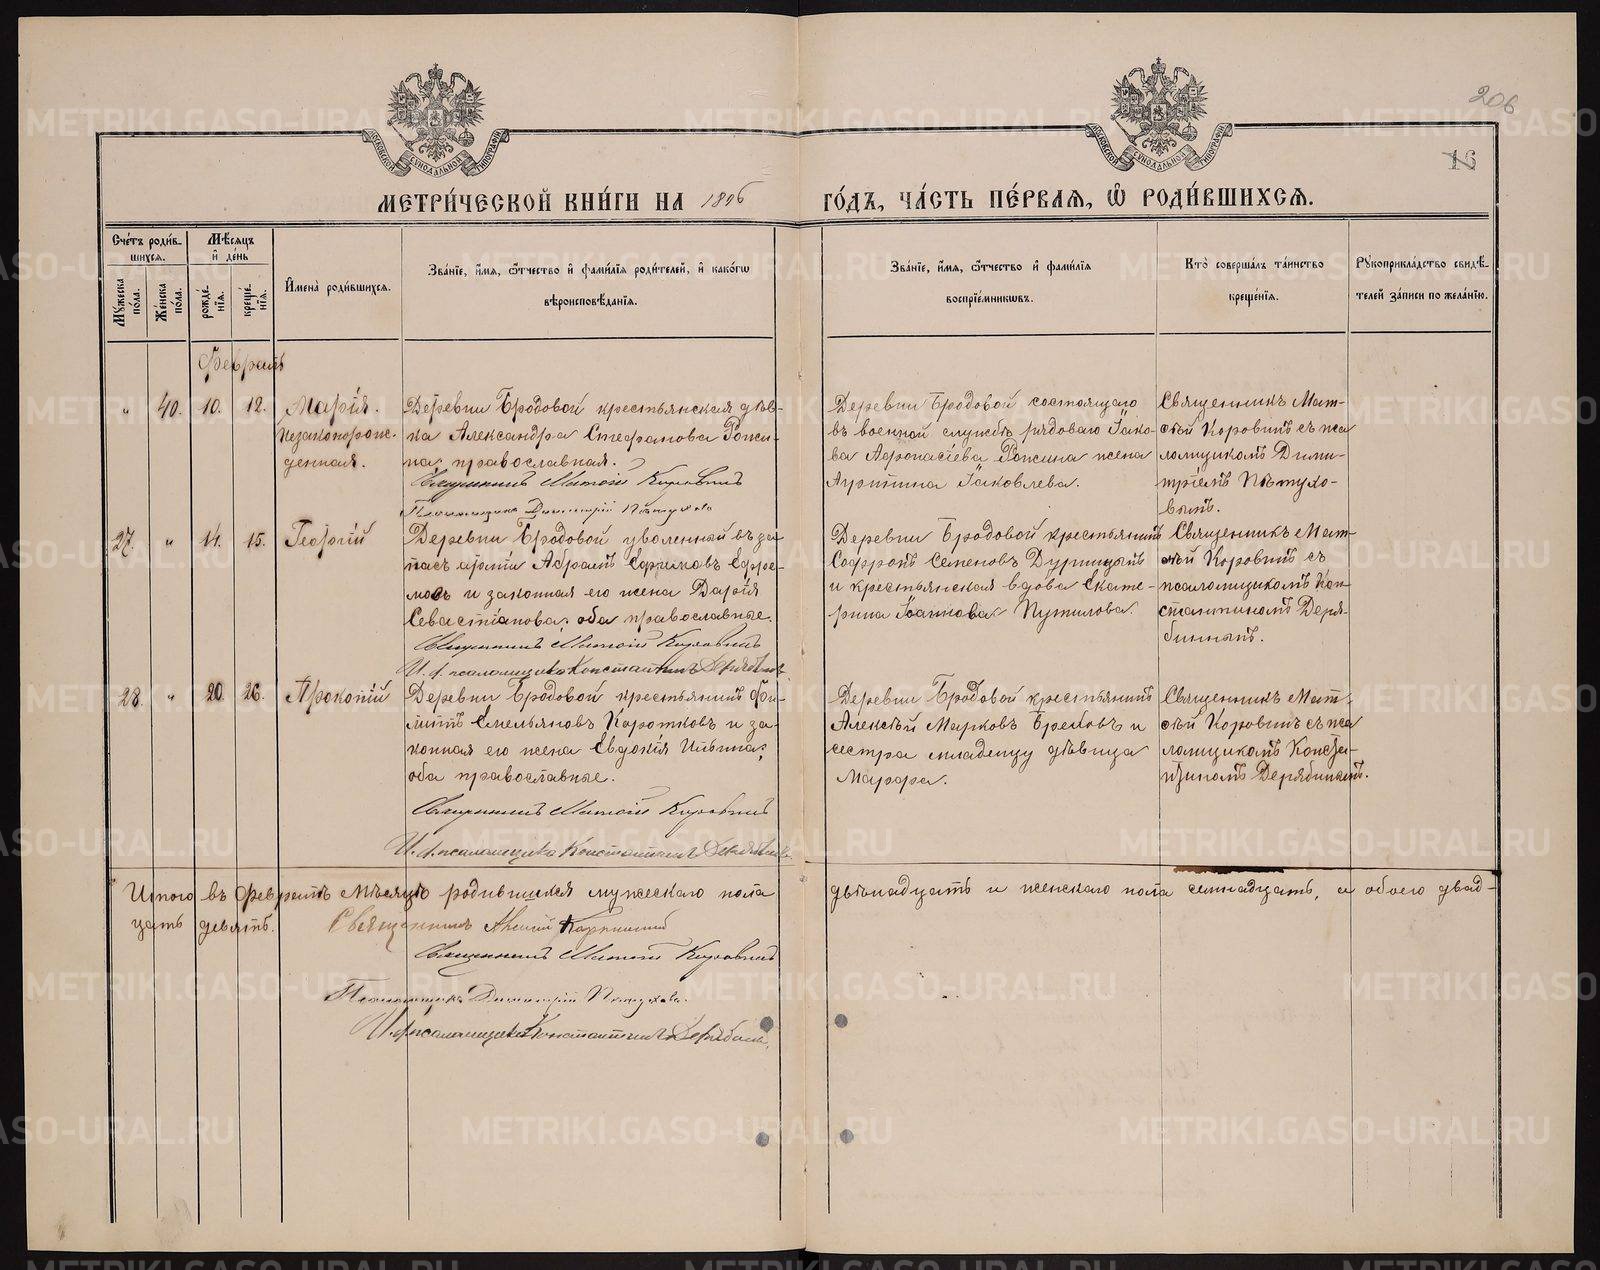 206
16
МЕТРИ́ЧЕСКОЙ КНИ́ГИ НА 1896 ГО́ДЪ, ЧА́СТЬ ПЕ́РВАѦ, Ѡ҆ РОДИ́ВШИХСѦ.
Сче́тъ роди́в-
шихсѧ.
Мѣ́сѧцъ
и҆ де́нь
Мꙋ́жеска по́ла.
Же́нска по́ла.
рожде́-нїѧ.
креще́-нїѧ.
И҆мена̀ роди́вшихсѧ.
Зва́нїе, и҆́мѧ, ѻ҆́тчество и҆ фами́лїѧ роди́телей, и҆ како́гѡ
вѣроисповѣ́данїѧ.
Зва́нїе, и҆́мѧ, ѻ҆́тчество и҆ фами́лїѧ
воспрїе́мникѡвъ.
Кто̀ соверша́лъ та́инство
креще́нїѧ.
Рꙋкоприкла́дство свидѣ́-
телей за́писи по жела́нїю.
Февраль
„ 40. 10. 12. Марія.
Незаконорож-
денная.
Деревни Бродовой крестьянская дѣв-
ка Александра Стефанова
православная.
Священникъ Матѳій Коровинъ
Псаломщикъ Димитрій Пѣтухов
Деревни Бродовой состоящаго
въ военной службѣ рядоваго Іако-
ва Афонасіева жена
Іаковлева.
Священникъ Мат-
ѳій Коровинъ съ пса
ломщикомъ Дими-
тріемъ Пѣтухо-
вымъ.
27. „ 11. 15. Георгій
Деревни Бродовой уволенный въ за-
пасъ арміи Абрамъ Ефимовъ
и законная его жена Дарія
Севастіанова, оба православные.
Священникъ Матѳій Коровинъ
И. д. псаломщика Константинъ Дерябинъ
Деревни Бродовой крестьянинъ
Софронъ Семеновъ
и крестьянская вдова Екате-
рина Іоаннова Путилова.
Священникъ Мат-
ѳій Коровинъ съ
псаломщикомъ Кон-
стантиномъ Деря-
бинымъ.
28. „ 20 26. Прокопій
Деревни Бродовой крестьянинъ Фи-
липпъ Емельяновъ Коротковъ и за-
конная его жена Евдокія Ильина,
оба православные.
Священникъ Матѳій Коровинъ
И. д. псаломщика Константинъ Дерябинъ
Деревни Бродовой крестьянинъ
Алексѣй Марковъ и
сестра младенцу дѣвица
Марфа.
Священникъ Мат-
ѳій Коровинъ съ пса
ломщикомъ Конста-
нтиномъ Дерябинымъ.
Итого въ Февралѣ Мѣсяцѣ родившихся мужескаго пола двѣнадцать и женскаго пола семнадцать, а обоего двад-
цать девять.
Священникъ
Священникъ Матѳій Коровинъ
Псаломщикъ Димитрій Пѣтухов
И. д. псаломщика Константинъ Дерябинъ
METRIKI.GASO-URAL.RU